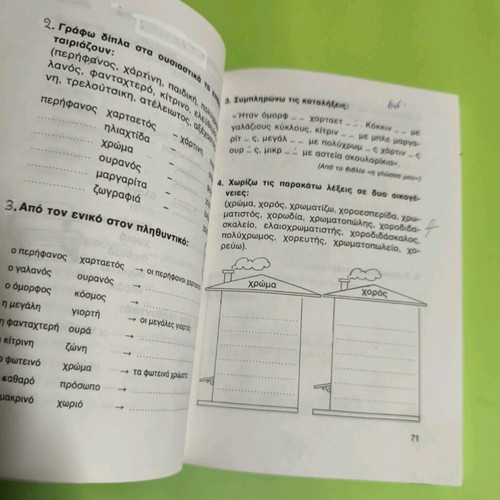 2. Γράφω δίπλα στα ουσιαστικά τα
ταιριάζουν:
(περήφανος, χάρτινη, παιδική,
λανός, φανταχτερό, κίτρινο,
νη, τρελούτσικη, ατέλειωτος,
περήφανος χαρταετός – χάρτινη
ηλιαχτίδα –
χρώμα –
ουρανός –
μαργαρίτα –
ζωγραφιά –
3. Από τον ενικό στον πληθυντικό:
ο περήφανος χαρταετός → οι περήφανοι
ο γαλανός ουρανός →
ο όμορφος κόσμος →
η μεγάλη γιορτή → οι μεγάλες γιορτές
η φανταχτερή ουρά →
η κίτρινη ζώνη →
το φωτεινό χρώμα → τα φωτεινά χρώματα
καθαρό πρόσωπο →
μακρινό χωριό →
3. Συμπληρώνω τις καταλήξεις:
«Ήταν όμορφ _ _ χαρταετ _ _. Κόκκιν _ _ με
γαλάζιους κύκλους, κίτριν _ _ με μπλε μαργα-
ρίτ _ ς, μεγάλ _ _ με πολύχρωμ _ ς χάρτιν _ ς
ουρ _ ς, μικρ _ _ με αστεία σκουλαρίκια».
(Από το βιβλίο «η γλώσσα μου»)
4. Χωρίζω τις παρακάτω λέξεις σε δυο οικογέ-
νειες:
(χρώμα, χορός, χρωματίζω, χοροεσπερίδα, χρω-
ματιστός, χορωδία, χρωματοπώλης, χοροδιδα-
σκαλείο, ελαιοχρωματιστής, χοροδιδάσκαλος,
πολύχρωμος, χορευτής, χρωματοπωλείο, χο-
ρεύω).
χρώμα χορός
71